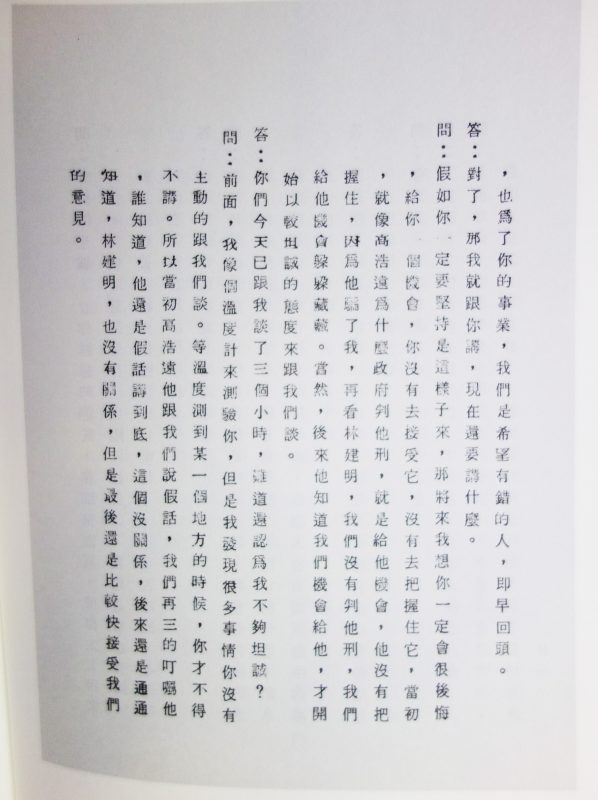 ，也為了你的事業，我們是希望有錯的人，即早回頭。
答：對了，那我就跟你講，現在還要講什麼。
問：假如你一定要堅持是這樣子來，那將來我想你一定會很後悔
，給你一個機會，你沒有去接受它，沒有去把握住它，當初
，就像高浩遠為什麼政府判他刑，就是給他機會，他沒有把
握住，因為他騙了我，再看林建明，我們沒有判他刑，我們
給他機會躲躲藏藏。當然，後來他知道我們機會給他，才開
始以較坦談的態度來跟我們談。
答：你們今天已跟我談了三個小時，難道還認為我不夠坦談？
問：前面，我像個溫度計來測驗你，但是我發現很多事情你沒有
主動的跟我們談。等溫度測到某一個地方的時候，你才不得
不講。所以當初高浩遠他跟我們說假話，我們再三的叮囑他
，誰知道，他還是假話講到底，這個沒關係，後來還是通通
知道，林建明，也沒有關係，但是最後還是比較快接受我們
的意見。